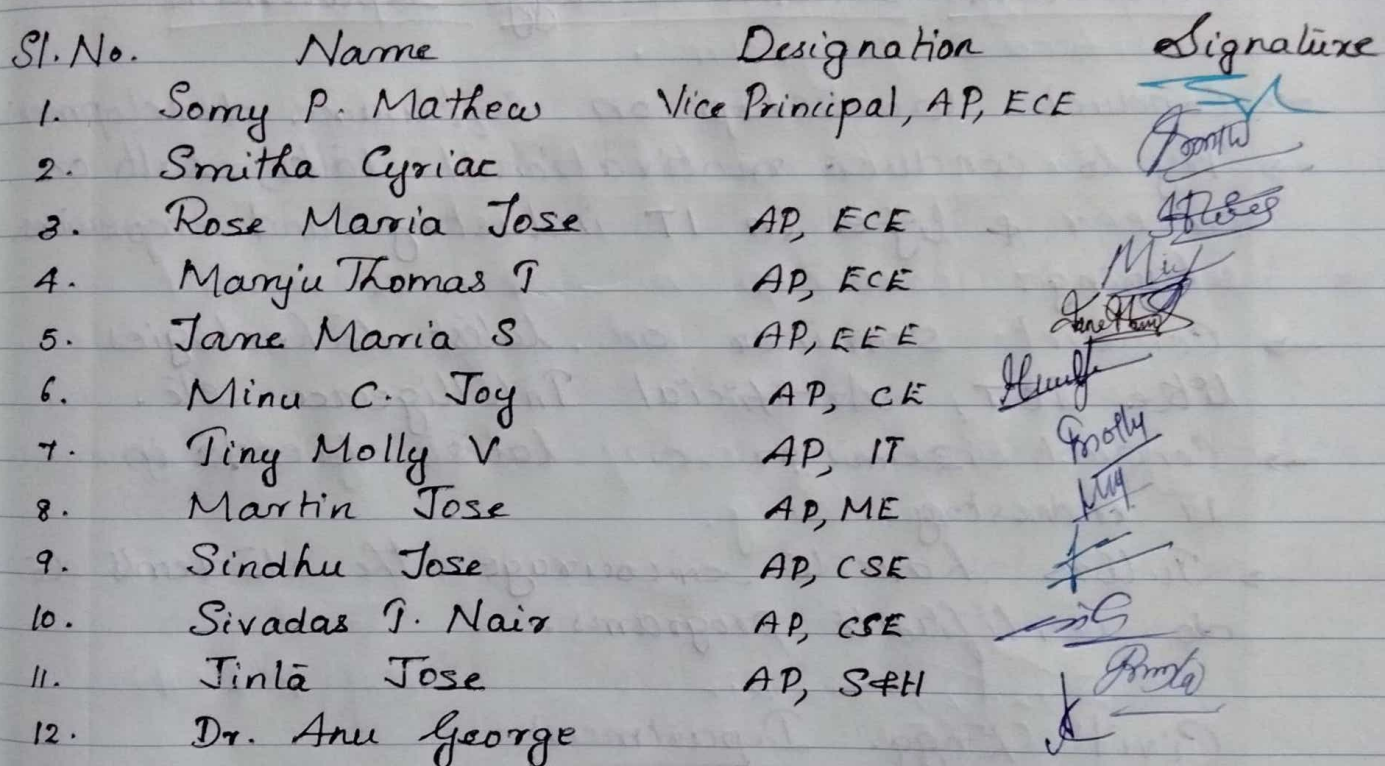 Sl. No. Name Designation Signature
1. Somy P. Mathew Vice Principal, AP, ECE
2. Smitha Cyriac
3. Rose Maria Jose AP, ECE
4. Manju Thomas T AP, ECE
5. Jane Maria S AP, EEE
6. Minu C. Joy AP, CE
7. Tiny Molly V AP, IT Molly
8. Martin Jose AP, ME
9. Sindhu Jose AP, CSE
10. Sivadas T. Nair AP, CSE
11. Jinta Jose AP, S&H
12. Dr. Anu George